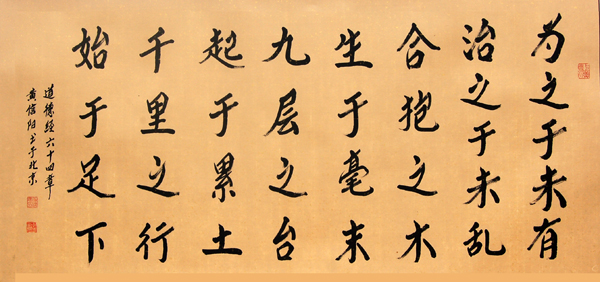 为之于未有
治之于未乱
合抱之木
生于毫末
九层之台
起于累土
千里之行
始于足下
道德经六十四章
黄信阳书于北京